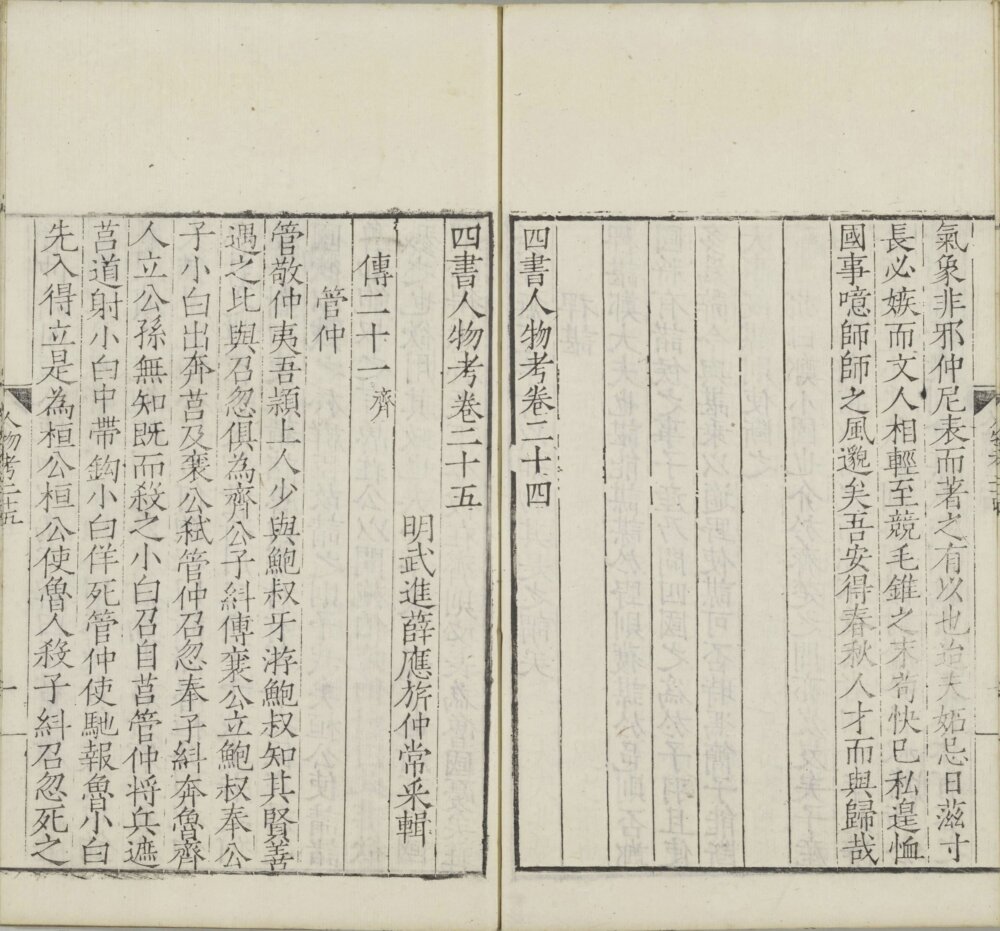 氣象非邪仲尼表而著之有以也治夫妬忌日滋寸
長必嫉而文人相輕至競毛錐之末苟快已私遑恤
國事噫師師之風邈矣吾安得春秋人才而與歸哉
四書人物考卷二十四
四書人物考卷二十五
明武進薛應旂仲常采輯
傳二十一 齊
管仲
管敬仲夷吾潁上人少與鮑叔牙游鮑叔知其賢善
遇之比與召忽俱為齊公子糾傅襄公立鮑叔奉公
子小白出奔莒及襄公弑管仲召忽奉子糾奔魯齊
人立公孫無知既而殺之小白召自莒管仲將兵遮
莒道射小白中帶鈎小白佯死管仲使馳報魯小白
先入得立是為桓公桓公使魯人殺子糾召忽死之
人物考二十五
一